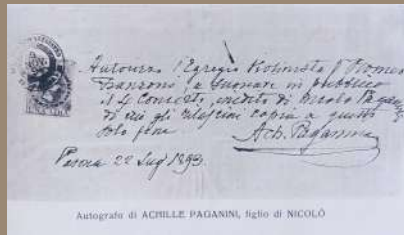 Autorizzo l'Egregio Violinista Romeo
Franzoni, a suonare in pubblico
il 4 Concerto, inedito di Nicolo Paganini
di cui gli rilasciai copia a questo
solo fine.
Ach. Paganini
22 Lug 1893.
Autografo di ACHILLE PAGANINI, figlio di NICOLÒ